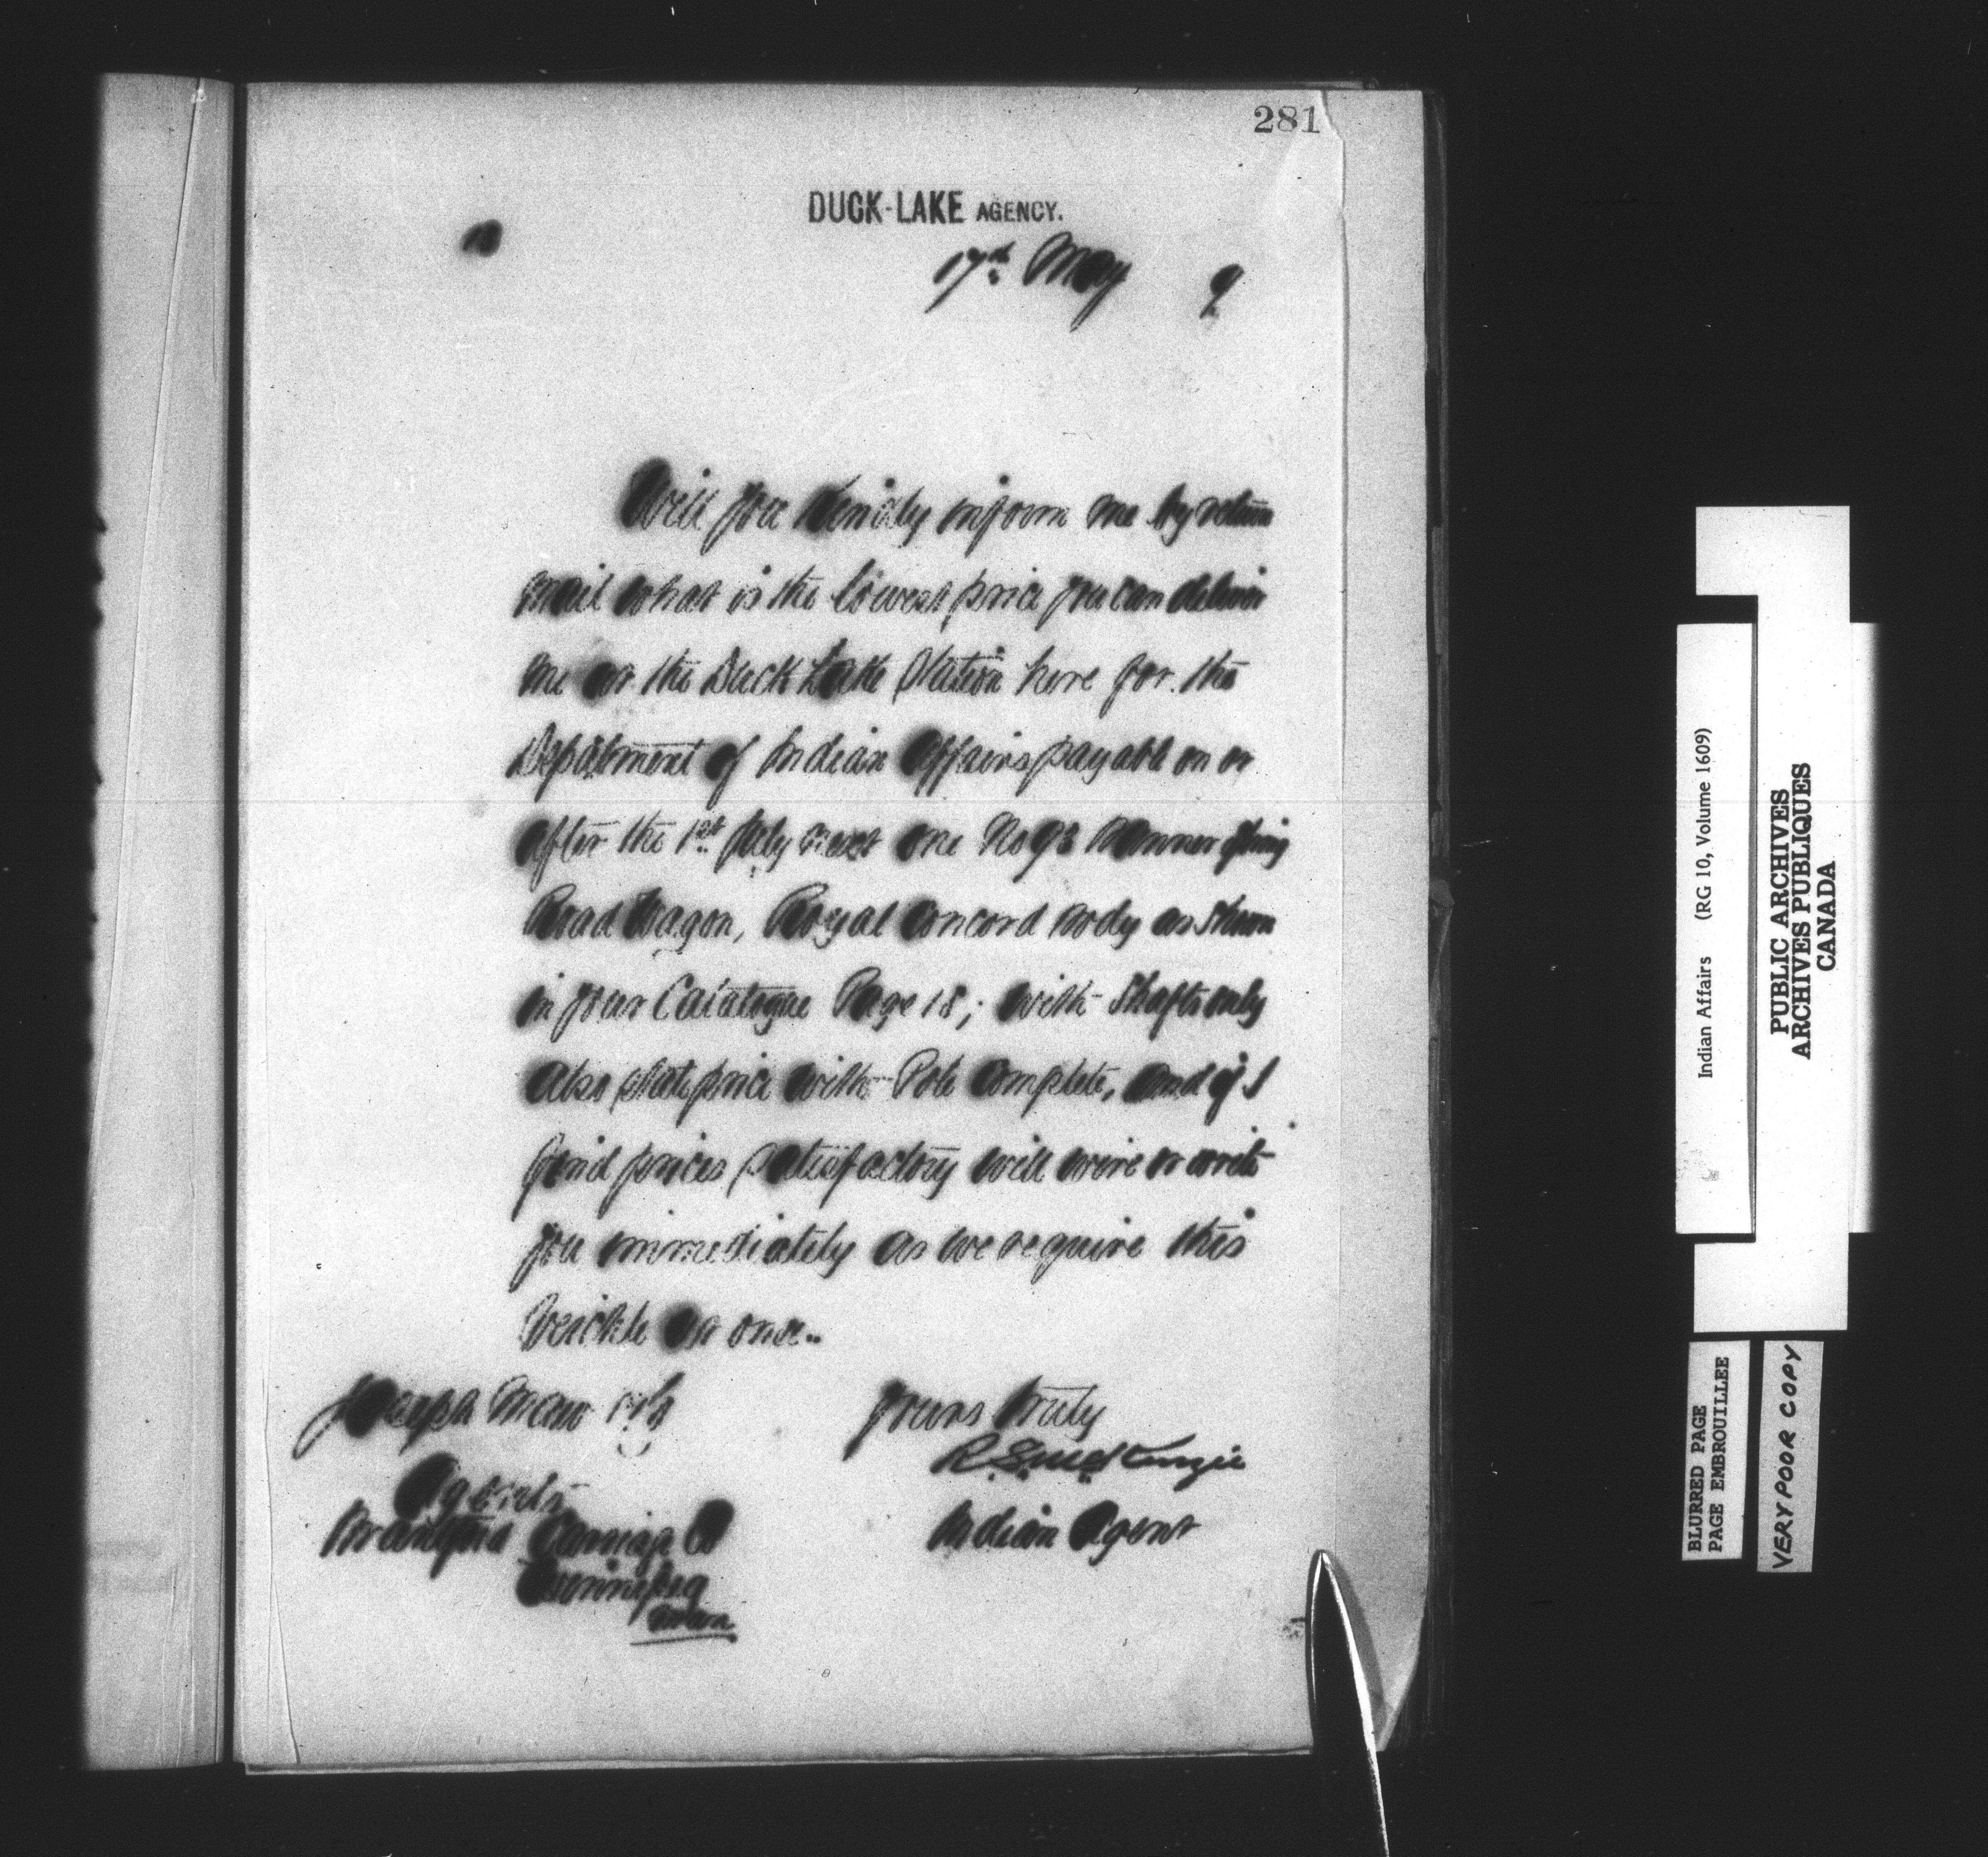 281
DUCK-LAKE AGENCY.
17th May 9
Will you kindly inform me by return
mail what is the lowest price you can deliver
me at the Duck Lake Station here for the
Department of Indian Affairs payable on or
after the 1st July next one No 93 Spring
Road Wagon, Royal Concord body as shown
in your Catalogue Page 18; with Shafts only
Also state price with Pole Complete, and if I
find prices satisfactory will wire or write
you immediately as we require this
Veichle at once..
Joseph Maw & Co
Agents
Brantford Carriage Co
Winnipeg
Man
Yours truly
R.S. McKenzie
Indian Agent
Indian Affairs (RG 10, Volume 1609)
PUBLIC ARCHIVES
ARCHIVES PUBLIQUES
CANADA
BLURRED PAGE
PAGE EMBROUILLEE
VERY POOR COPY